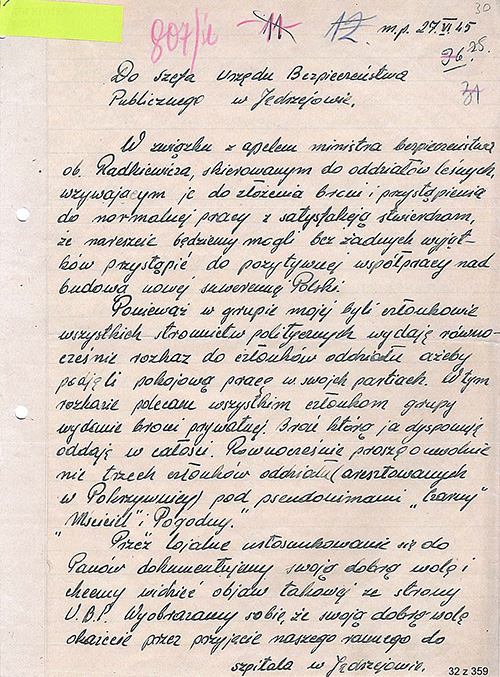 30
807/ł 11 12 m.p. 27.VI 45
25
26
31
Do szefa Urzędu Bezpieczeństwa
Publicznego w Jędrzejowie.
W związku z apelem ministra bezpieczeństwa
ob. Radkiewicza, skierowanym do oddziałów leśnych,
wzywającym je do złożenia broni i przystąpienia
do normalnej pracy z satysfakcją stwierdzam,
że nareszcie będziemy mogli bez żadnych wyjąt-
ków przystąpić do pozytywnej współpracy nad
budową nowej suwerennej Polski.
Ponieważ w grupie mojej byli członkowie
wszystkich stronnictw politycznych wydaję równo-
cześnie rozkaz do członków oddziału ażeby
podjęli pokojową pracę w swojch partiach. W tym
rozkazie polecam wszystkim członkom grupy
wydanie broni prywatnej. Broń którą ja dysponuję
oddają w całości. Równocześnie proszę o uwolnie
nie trzech członków oddziału (aresztowanych
w Pokrzywnicy) pod pseudonimami „Czarny”
„Mściciel” i Pogodny.”
Przez lojalne ustosunkowanie się do
Panów dokumentujemy swoją dobrą wolę i
chcemy widzieć objaw takowej ze strony
U.B.P. Wyobrażamy sobie, że swoją dobrą wolę
okażecie przez przyjęcie naszego rannego do
szpitala w Jędrzejowie.
32 z 359